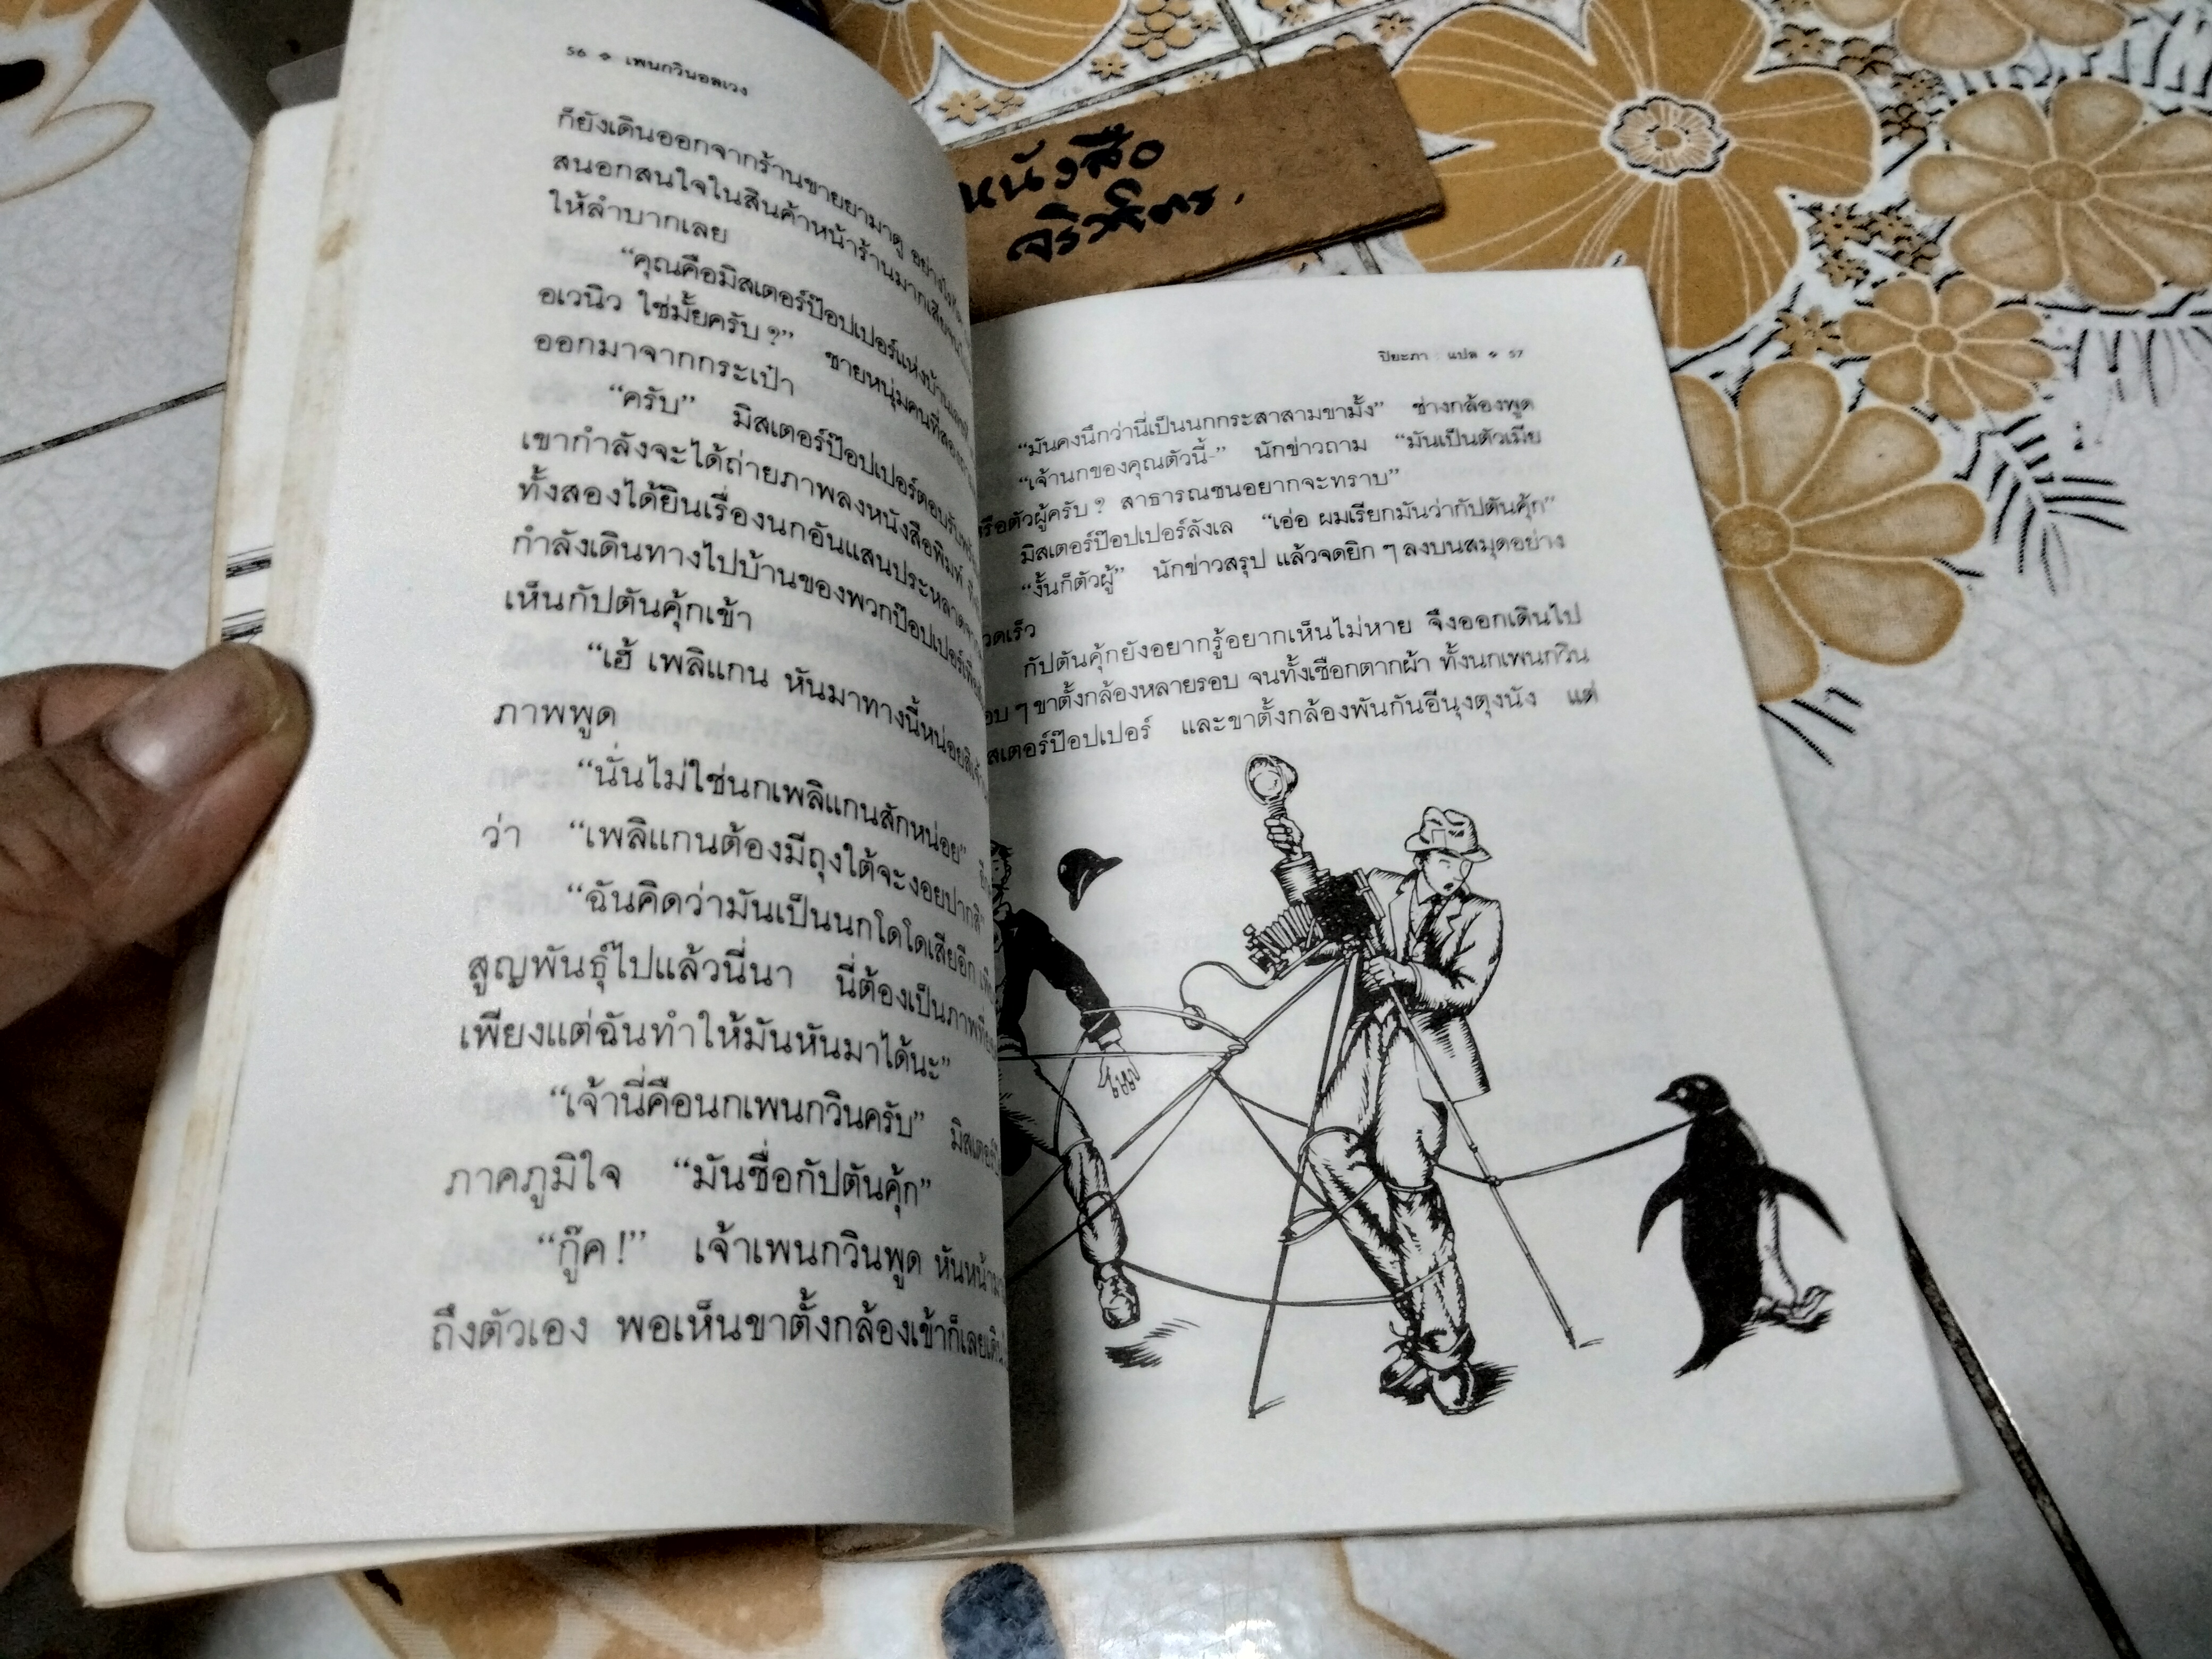 56 ❖ เพนกวินอลเวง
ก็ยังเดินออกจากร้านขายยามาดู อย่างไรก็
สนอกสนใจในสินค้าหน้าร้านมากเสียจน
ให้ลำบากเลย
“คุณคือมิสเตอร์ป๊อปเปอร์แห่งบ้านเลขที่
อเวนิว ใช่มั้ยครับ ?” ชายหนุ่มคนที่สอง
ออกมาจากกระเป๋า
“ครับ” มิสเตอร์ป๊อปเปอร์ตอบรับ
เขากำลังจะได้ถ่ายภาพลงหนังสือพิมพ์
ทั้งสองได้ยินเรื่องนกอันแสนประหลาด
กำลังเดินทางไปบ้านของพวกป๊อปเปอร์
เห็นกัปตันคุ้กเข้า
“เฮ้ เพลิแกน หันมาทางนี้หน่อยสิ
ภาพพูด
“นั่นไม่ใช่นกเพลิแกนสักหน่อย”
ว่า “เพลิแกนต้องมีถุงใต้จะงอยปากสิ”
“ฉันคิดว่ามันเป็นนกโดโดเสียอีก
สูญพันธุ์ไปแล้วนี่นา นี่ต้องเป็นภาพที่
เพียงแต่ฉันทำให้มันหันมาได้นะ”
“เจ้านี่คือนกเพนกวินครับ”
ภาคภูมิใจ “มันชื่อกัปตันคุ้ก”
“กู๊ค !” เจ้าเพนกวินพูด หันหน้ามา
ถึงตัวเอง พอเห็นขาตั้งกล้องเข้าก็เลย
หนังสือ
ปิยะภา : แปล ❖ 57
“มันคงนึกว่านี่เป็นนกกระสาสามขามั้ง” ช่างกล้องพูด
“เจ้านกของคุณตัวนี้-” นักข่าวถาม “มันเป็นตัวเมีย
หรือตัวผู้ครับ ? สาธารณชนอยากจะทราบ”
มิสเตอร์ป๊อปเปอร์ลังเล “เอ่อ ผมเรียกมันว่ากัปตันคุ้ก”
“งั้นก็ตัวผู้” นักข่าวสรุป แล้วจดยิก ๆ ลงบนสมุดอย่าง
วดเร็ว
กัปตันคุ้กยังอยากรู้อยากเห็นไม่หาย จึงออกเดินไป
อบ ๆ ขาตั้งกล้องหลายรอบ จนทั้งเชือกตากผ้า ทั้งนกเพนกวิน
สเตอร์ป๊อปเปอร์ และขาตั้งกล้องพันกันอีนุงตุงนัง แต่